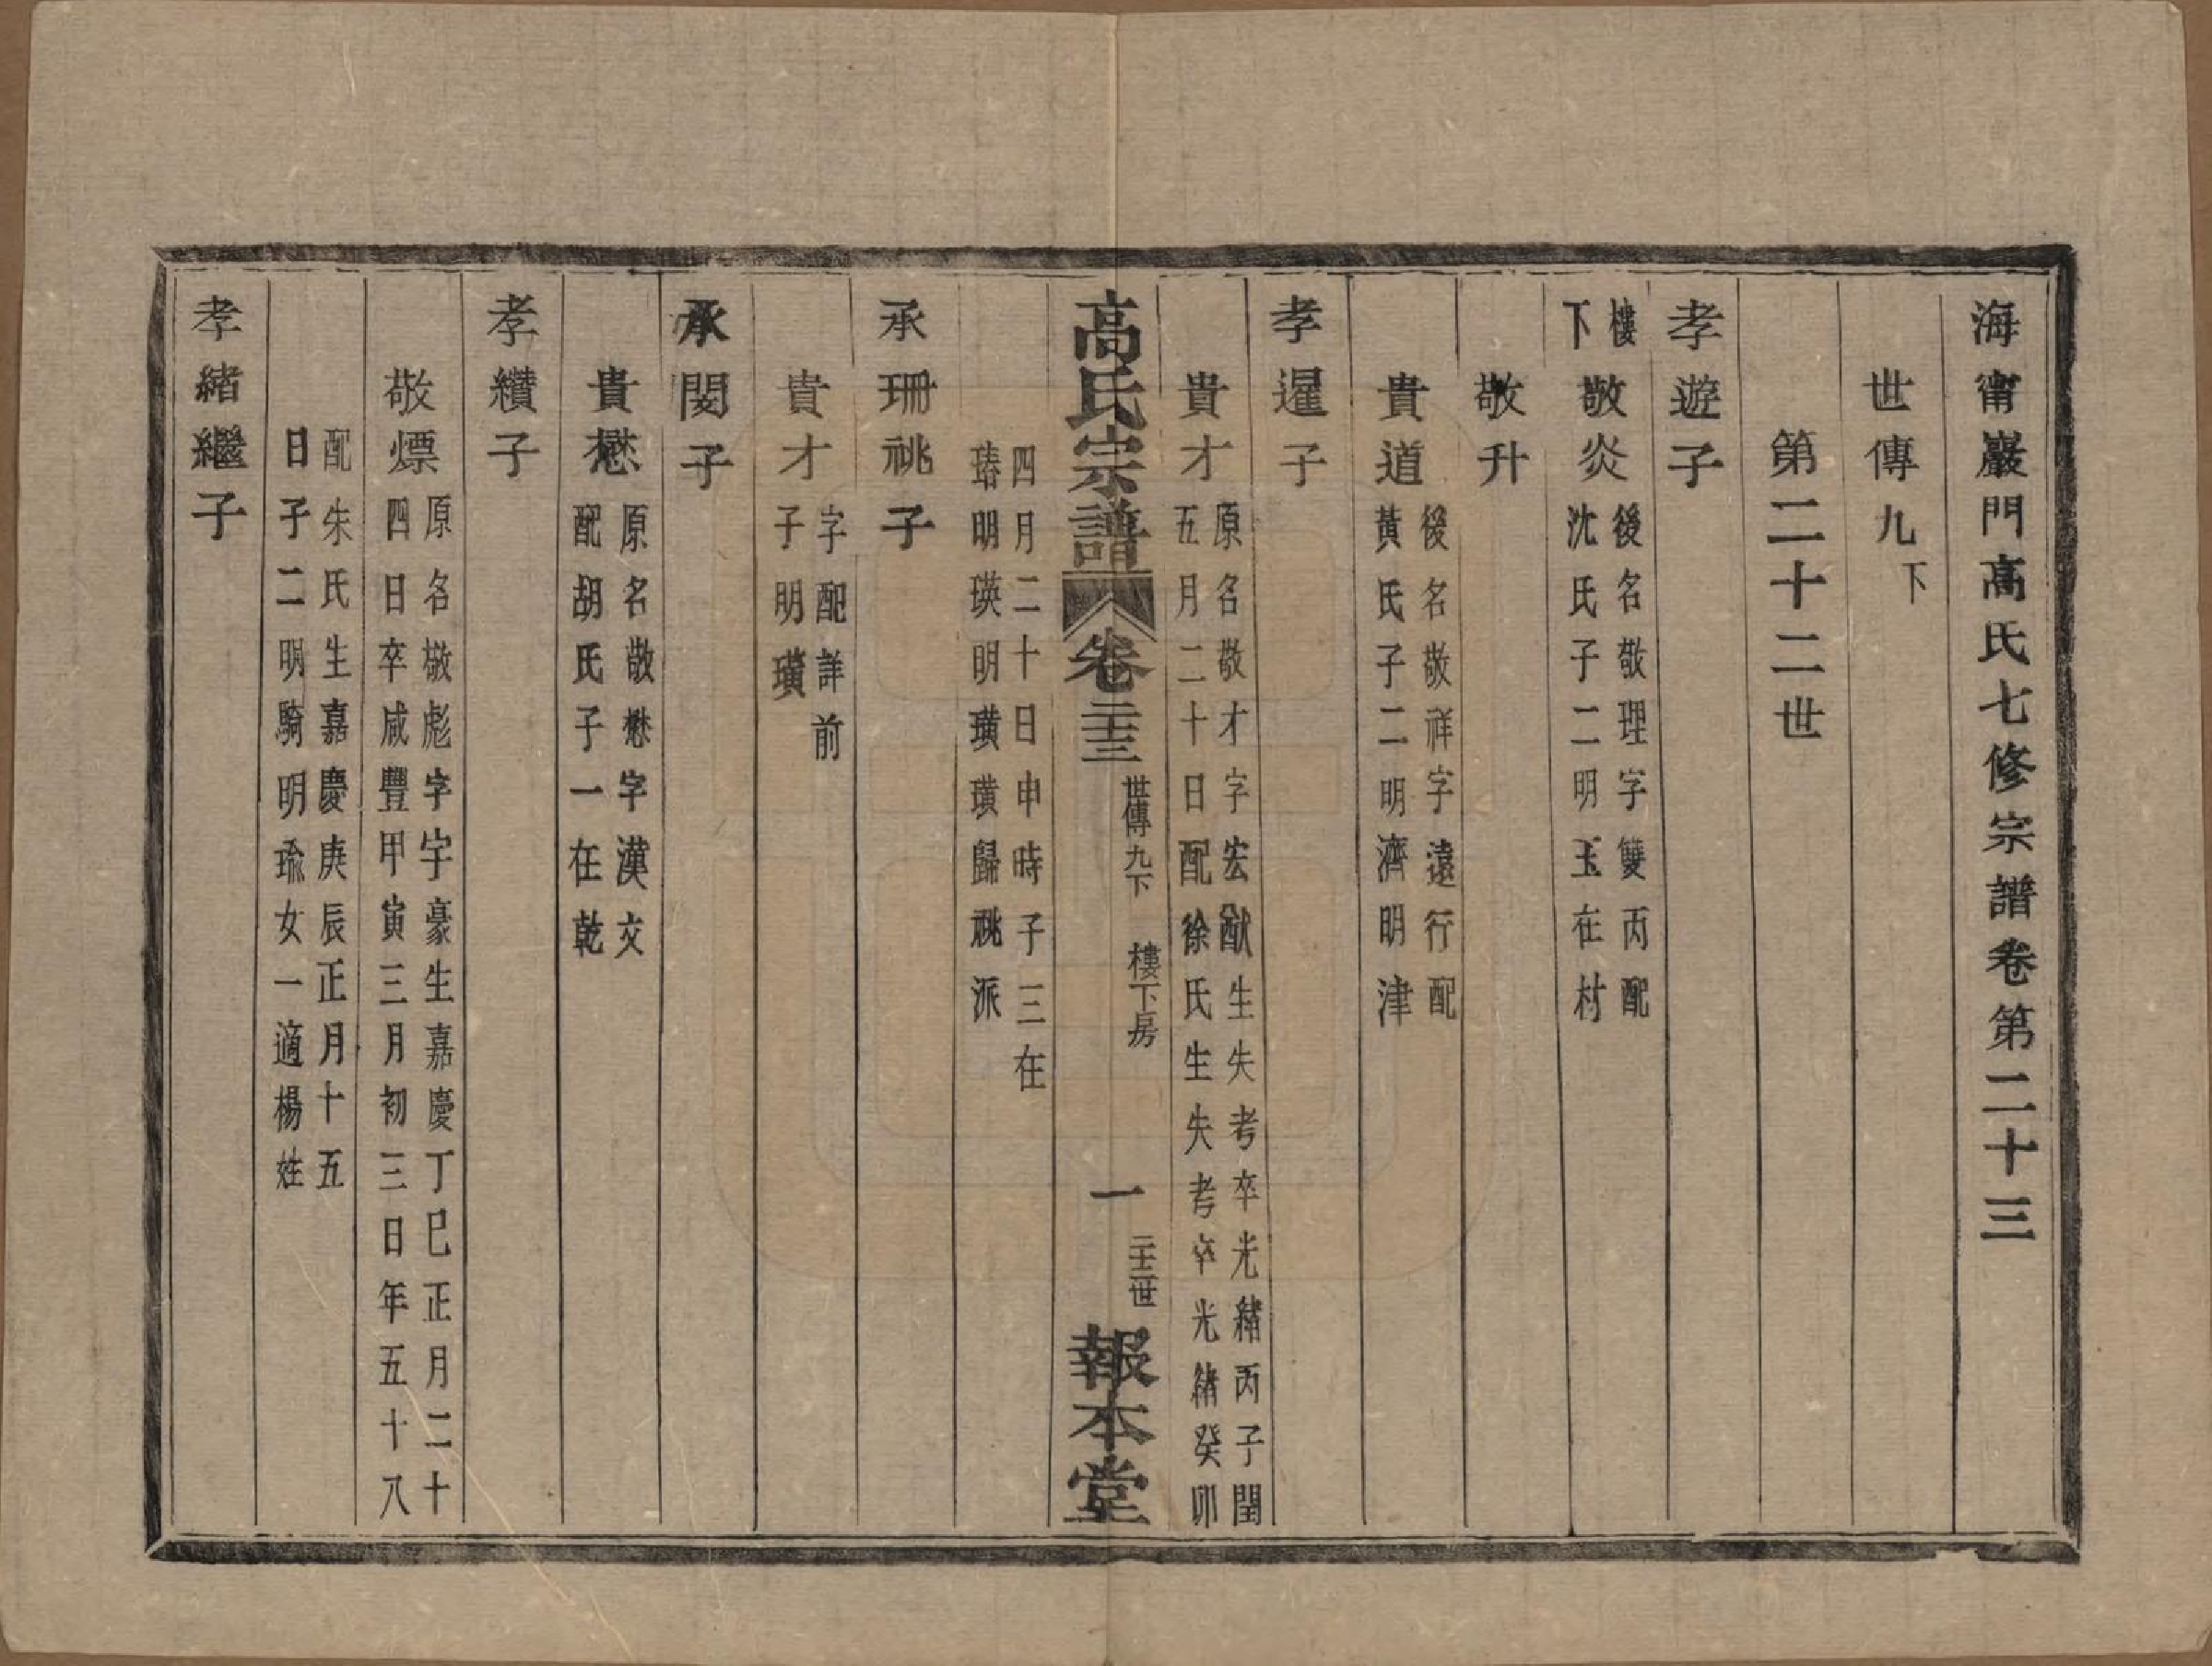 海甯巖門高氏七修宗譜卷第二十三
世傳九下
第二十二世
孝遊子
樓下
敬炎
後名敬理字雙丙配
沈氏子二明玉在村
敬升
貴道
後名敬祥字遠行配
黃氏子二明濟明津
孝暹子
貴才
原名敬才字宏猷生失考卒光緒丙子閏
五月二十日配徐氏生失考卒光緒癸卯
高氏宗譜
卷二十三
世傳九下
樓下房
一
二十二世
報本堂
四月二十日申時子三在
瑃明瑛明璜璜歸祧派
承珊祧子
貴才
字配詳前
子明璜
承閔子
貴懋
原名敬懋字漢文
配胡氏子一在乾
孝纘子
敬熛
原名敬彪字宇豪生嘉慶丁巳正月二十
四日卒咸豐甲寅三月初三日年五十八
配朱氏生嘉慶庚辰正月十五
日子二明騎明瑜女一適楊姓
孝緒繼子